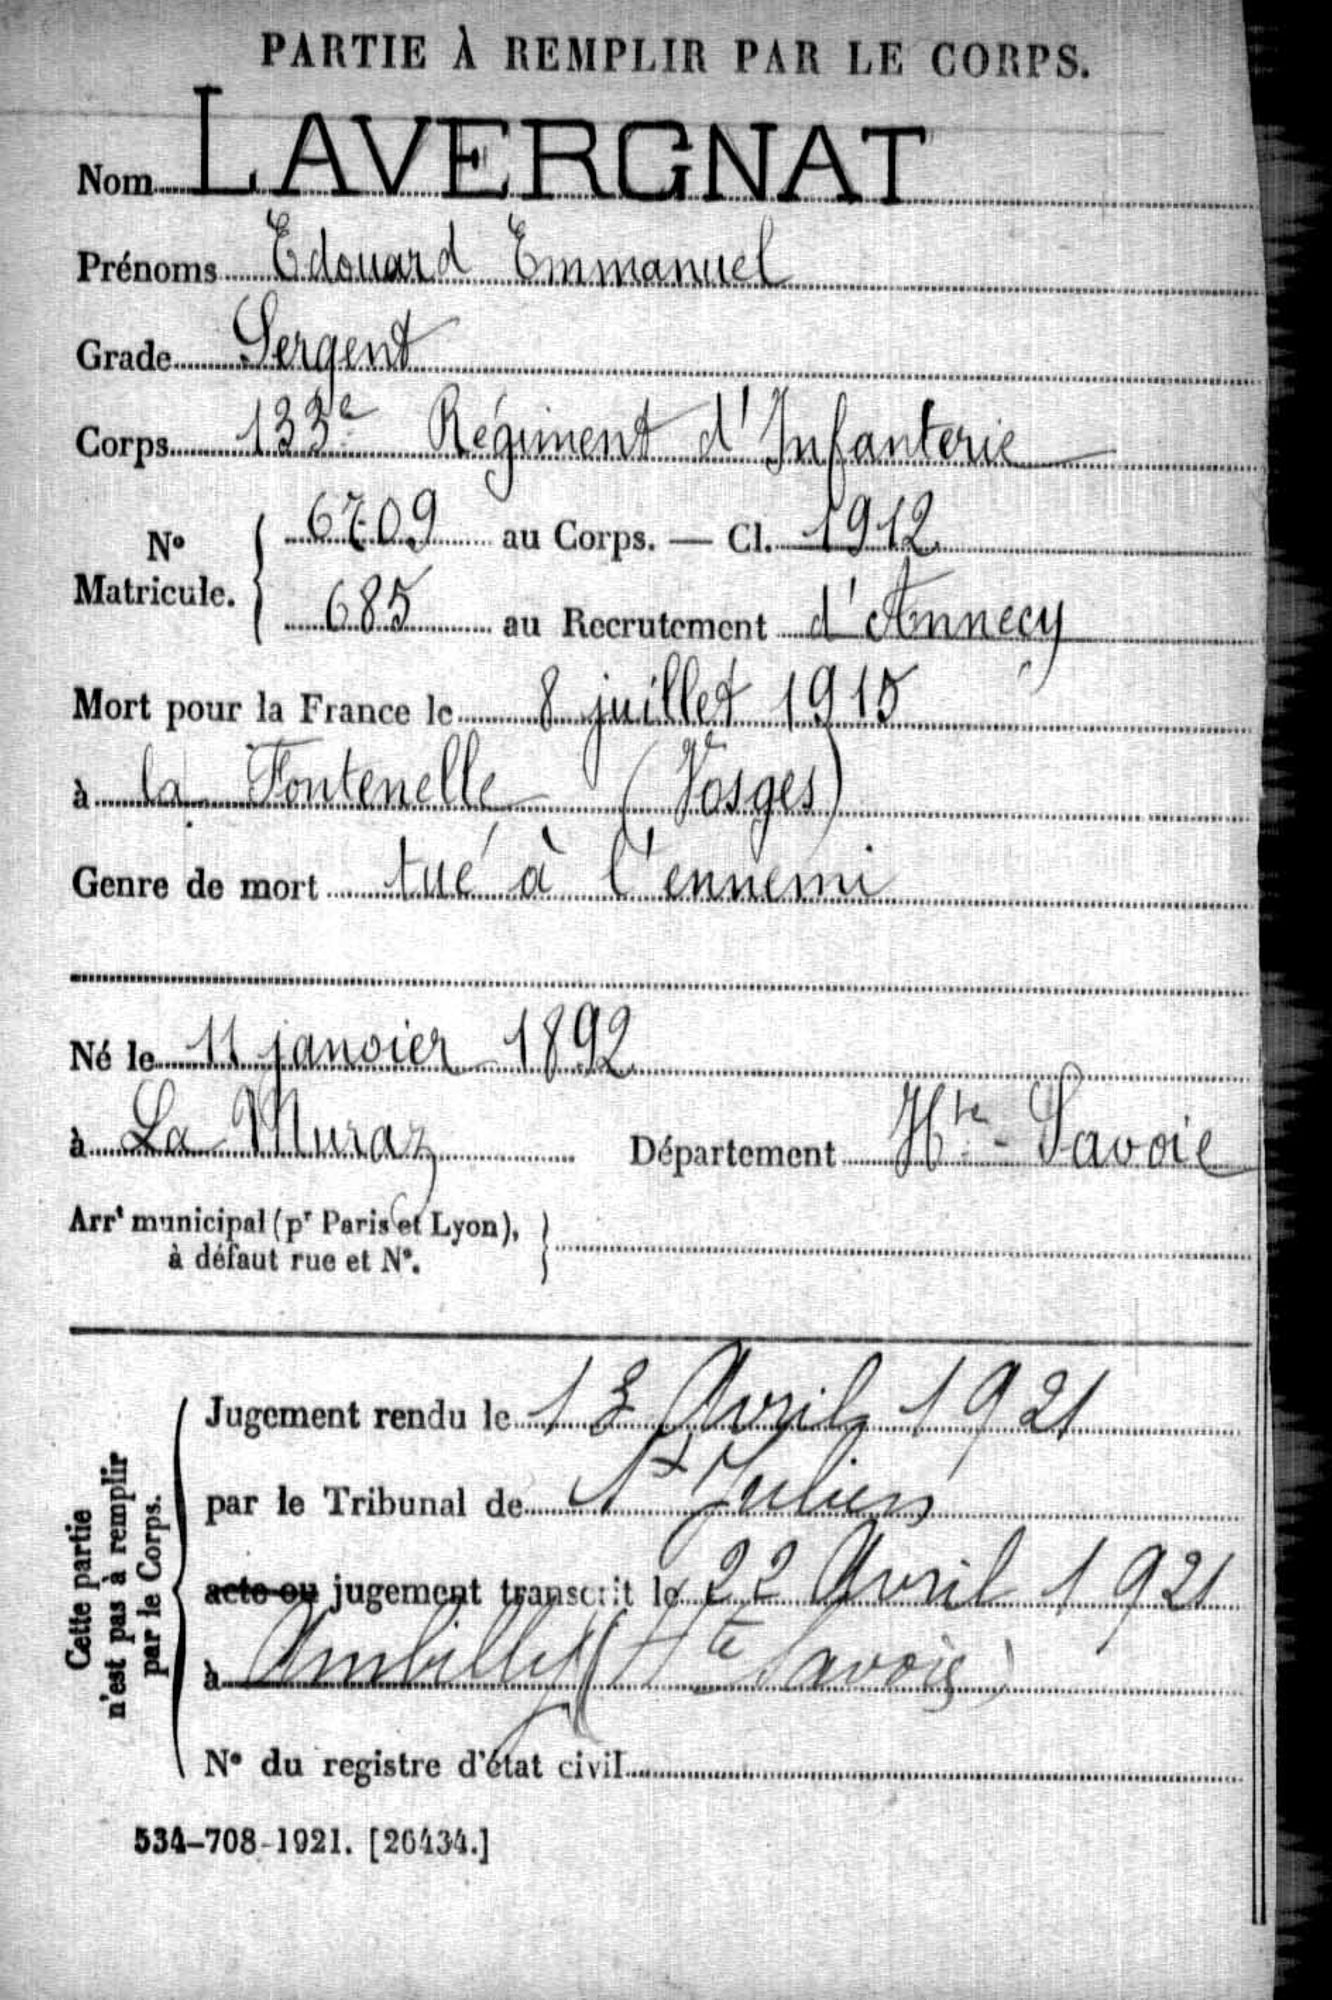 PARTIE À REMPLIR PAR LE CORPS.
Nom LAVERGNAT
Prénoms Edouard Emmanuel
Grade Sergent
Corps 133e Régiment d'Infanterie
No Matricule. { 6709 au Corps. — Cl. 1912
685 au Recrutement d'Annecy
Mort pour la France le 8 juillet 1915
à la Fontenelle (Vosges)
Genre de mort tué à l'ennemi
Né le 11 janvier 1892
à La Muraz Département Hte-Savoie
Arrt municipal (pr Paris et Lyon), à défaut rue et No. }
Cette partie n'est pas à remplir par le Corps. {
Jugement rendu le 13 Avril 1921
par le Tribunal de St Julien
acte ou jugement transcrit le 22 Avril 1921
à Ambilly (Hte Savoie)
No du registre d'état civil
534-708-1921. [26434.]